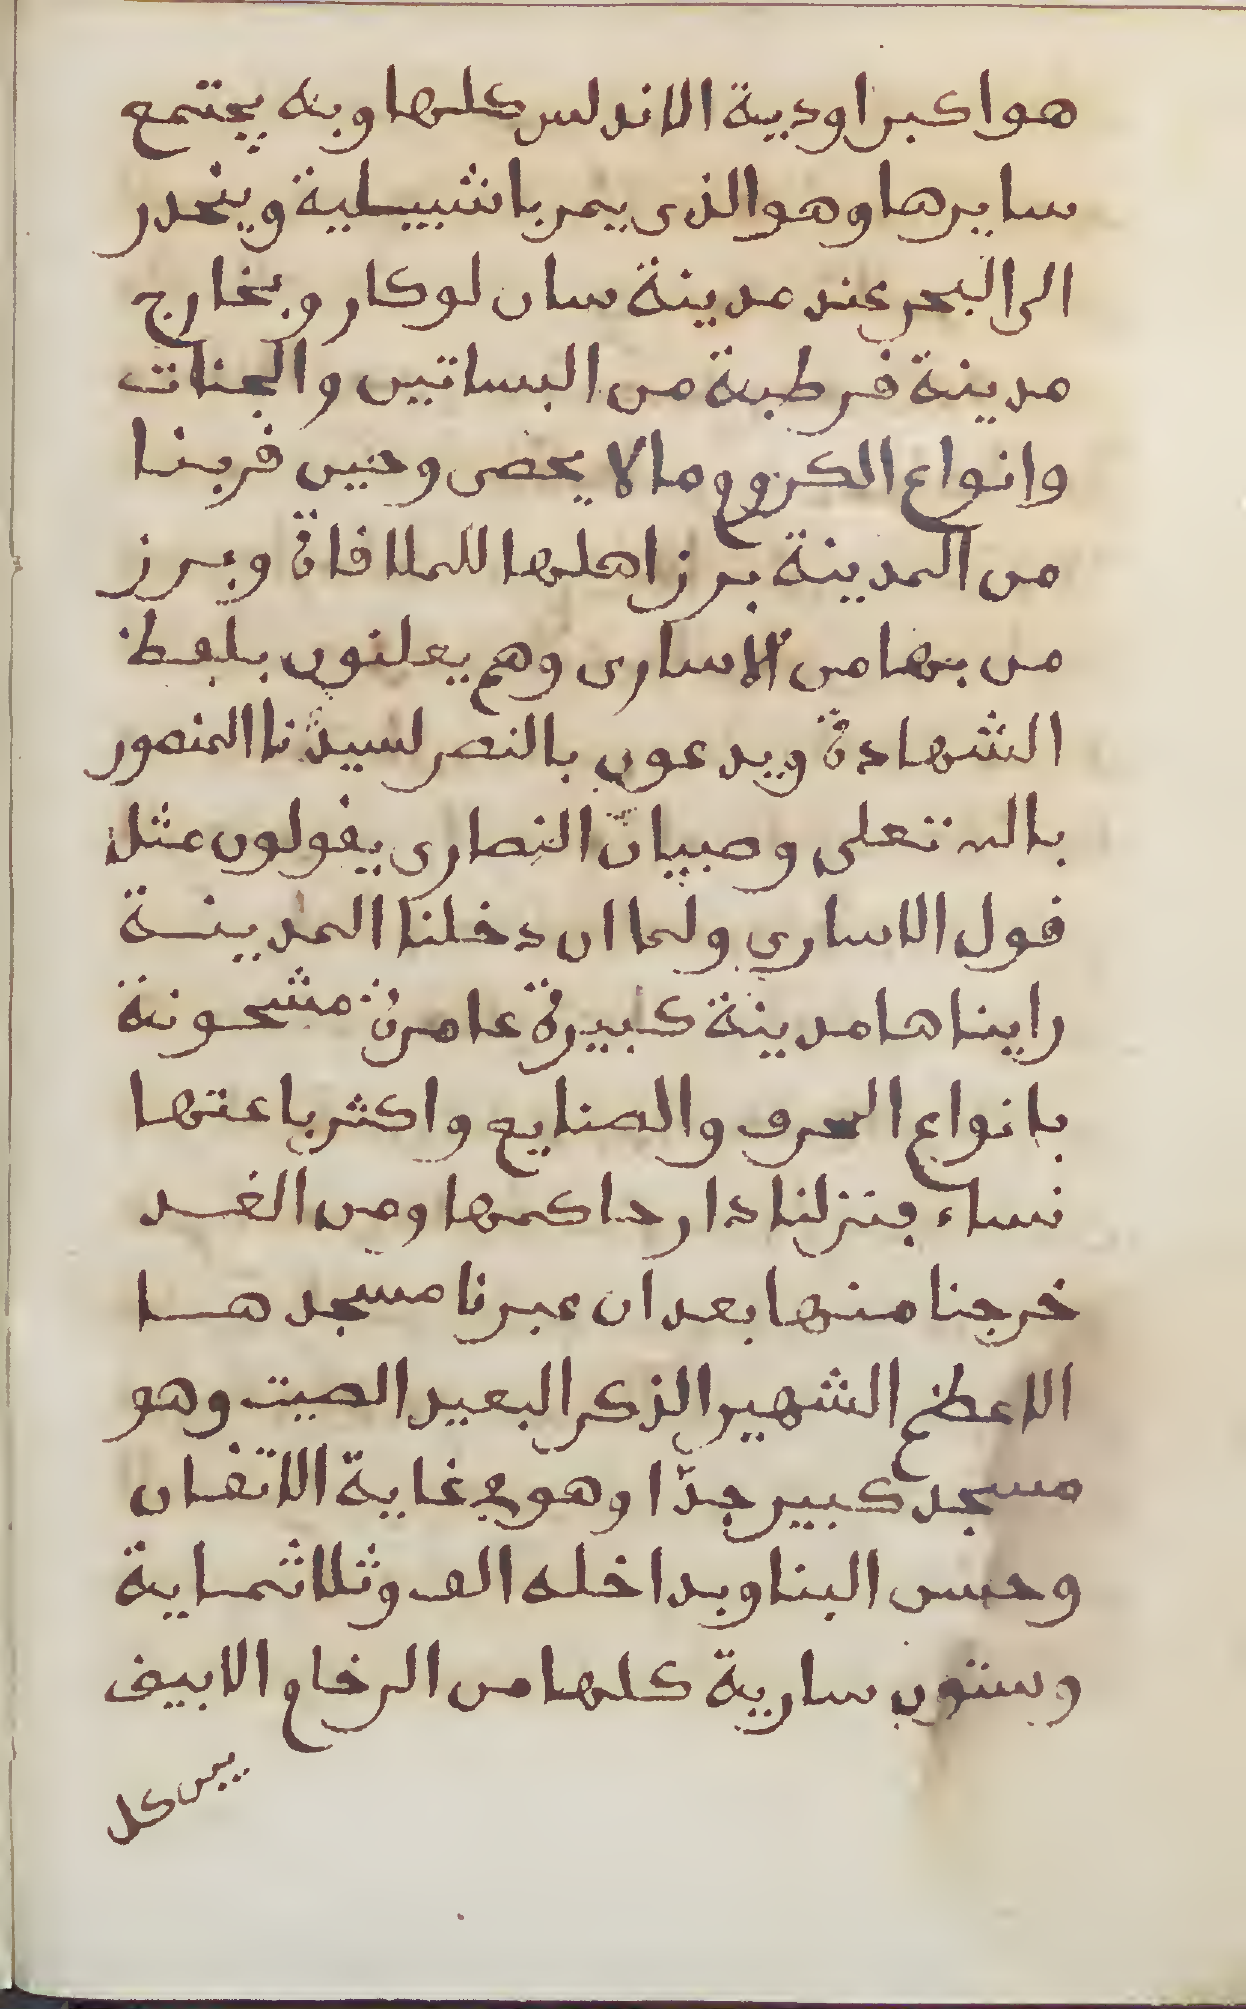 هو اكبر اودية الاندلس كلها وبه يجتمع
سايرها وهو الذى يمر باشبيلية وينحدر
الى البحر عند مدينة سان لوكار وبخارج
مدينة قرطبة من البساتين والجنات
وانواع الكروم وما لا يحصى وحين قربنا
من المدينة برز اهلها للملاقاة وبرز
من بها من الاسارى وهم يعلنون بلفظ
الشهادة ويدعون بالنصر لسيدنا المنصور
بالله تعلى وصبيان النصارى يقولون مثل
قول الاسارى ولما ان دخلنا المدينة
رايناها مدينة كبيرة عامرة مشحونة
بانواع الحرف والصنايع واكثر باعتها
نساء فنزلنا دار حاكمها ومن الغد
خرجنا منها بعد ان عبرنا مسجدها
الاعظم الشهير الذكر البعيد الصيت وهو
مسجد كبير جدّا وهو في غاية الاتقان
وحسن البنا وبداخله الف وثلاثماية
وستون سارية كلها من الرخام الابيض
بين كل